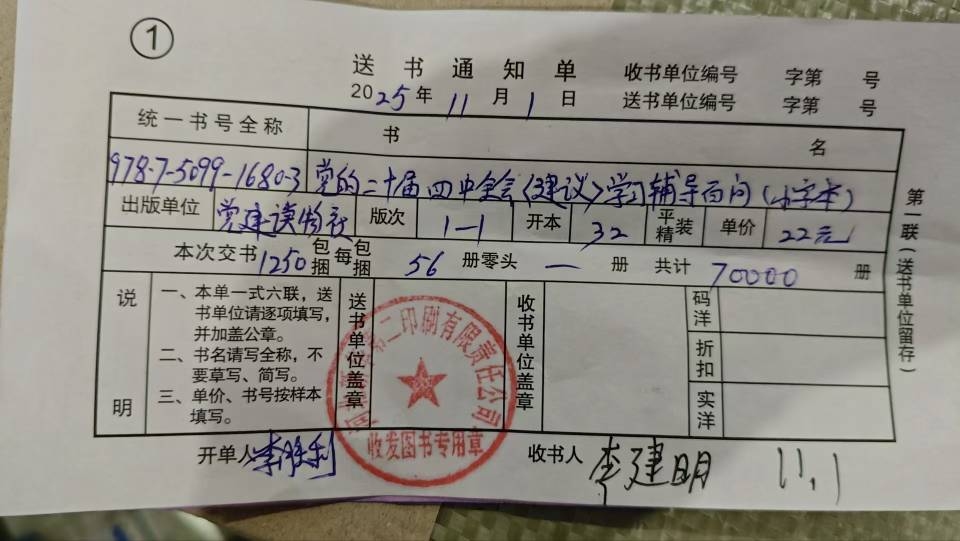 ①
送书通知单 收书单位编号 字第 号
2025年11月1日 送书单位编号 字第 号
统一书号全称 书名
978-7-5099-1680-3 党的二十届四中全会《建议》学习辅导百问(小字本)
出版单位 党建读物社 版次 1-1 开本 32 平精装 单价 22元
本次交书1250包捆每包捆 56 册零头 一 册 共计 70000 册
说明
一、本单一式六联,送
书单位请逐项填写,
并加盖公章。
二、书名请写全称,不
要草写、简写。
三、单价、书号按样本
填写。
送书单位盖章
第二印刷有限责任公司
收发图书专用章
收书单位盖章
码洋
折扣
实洋
开单人 李胜利 收书人 李建明 11.1
第一联(送书单位留存)